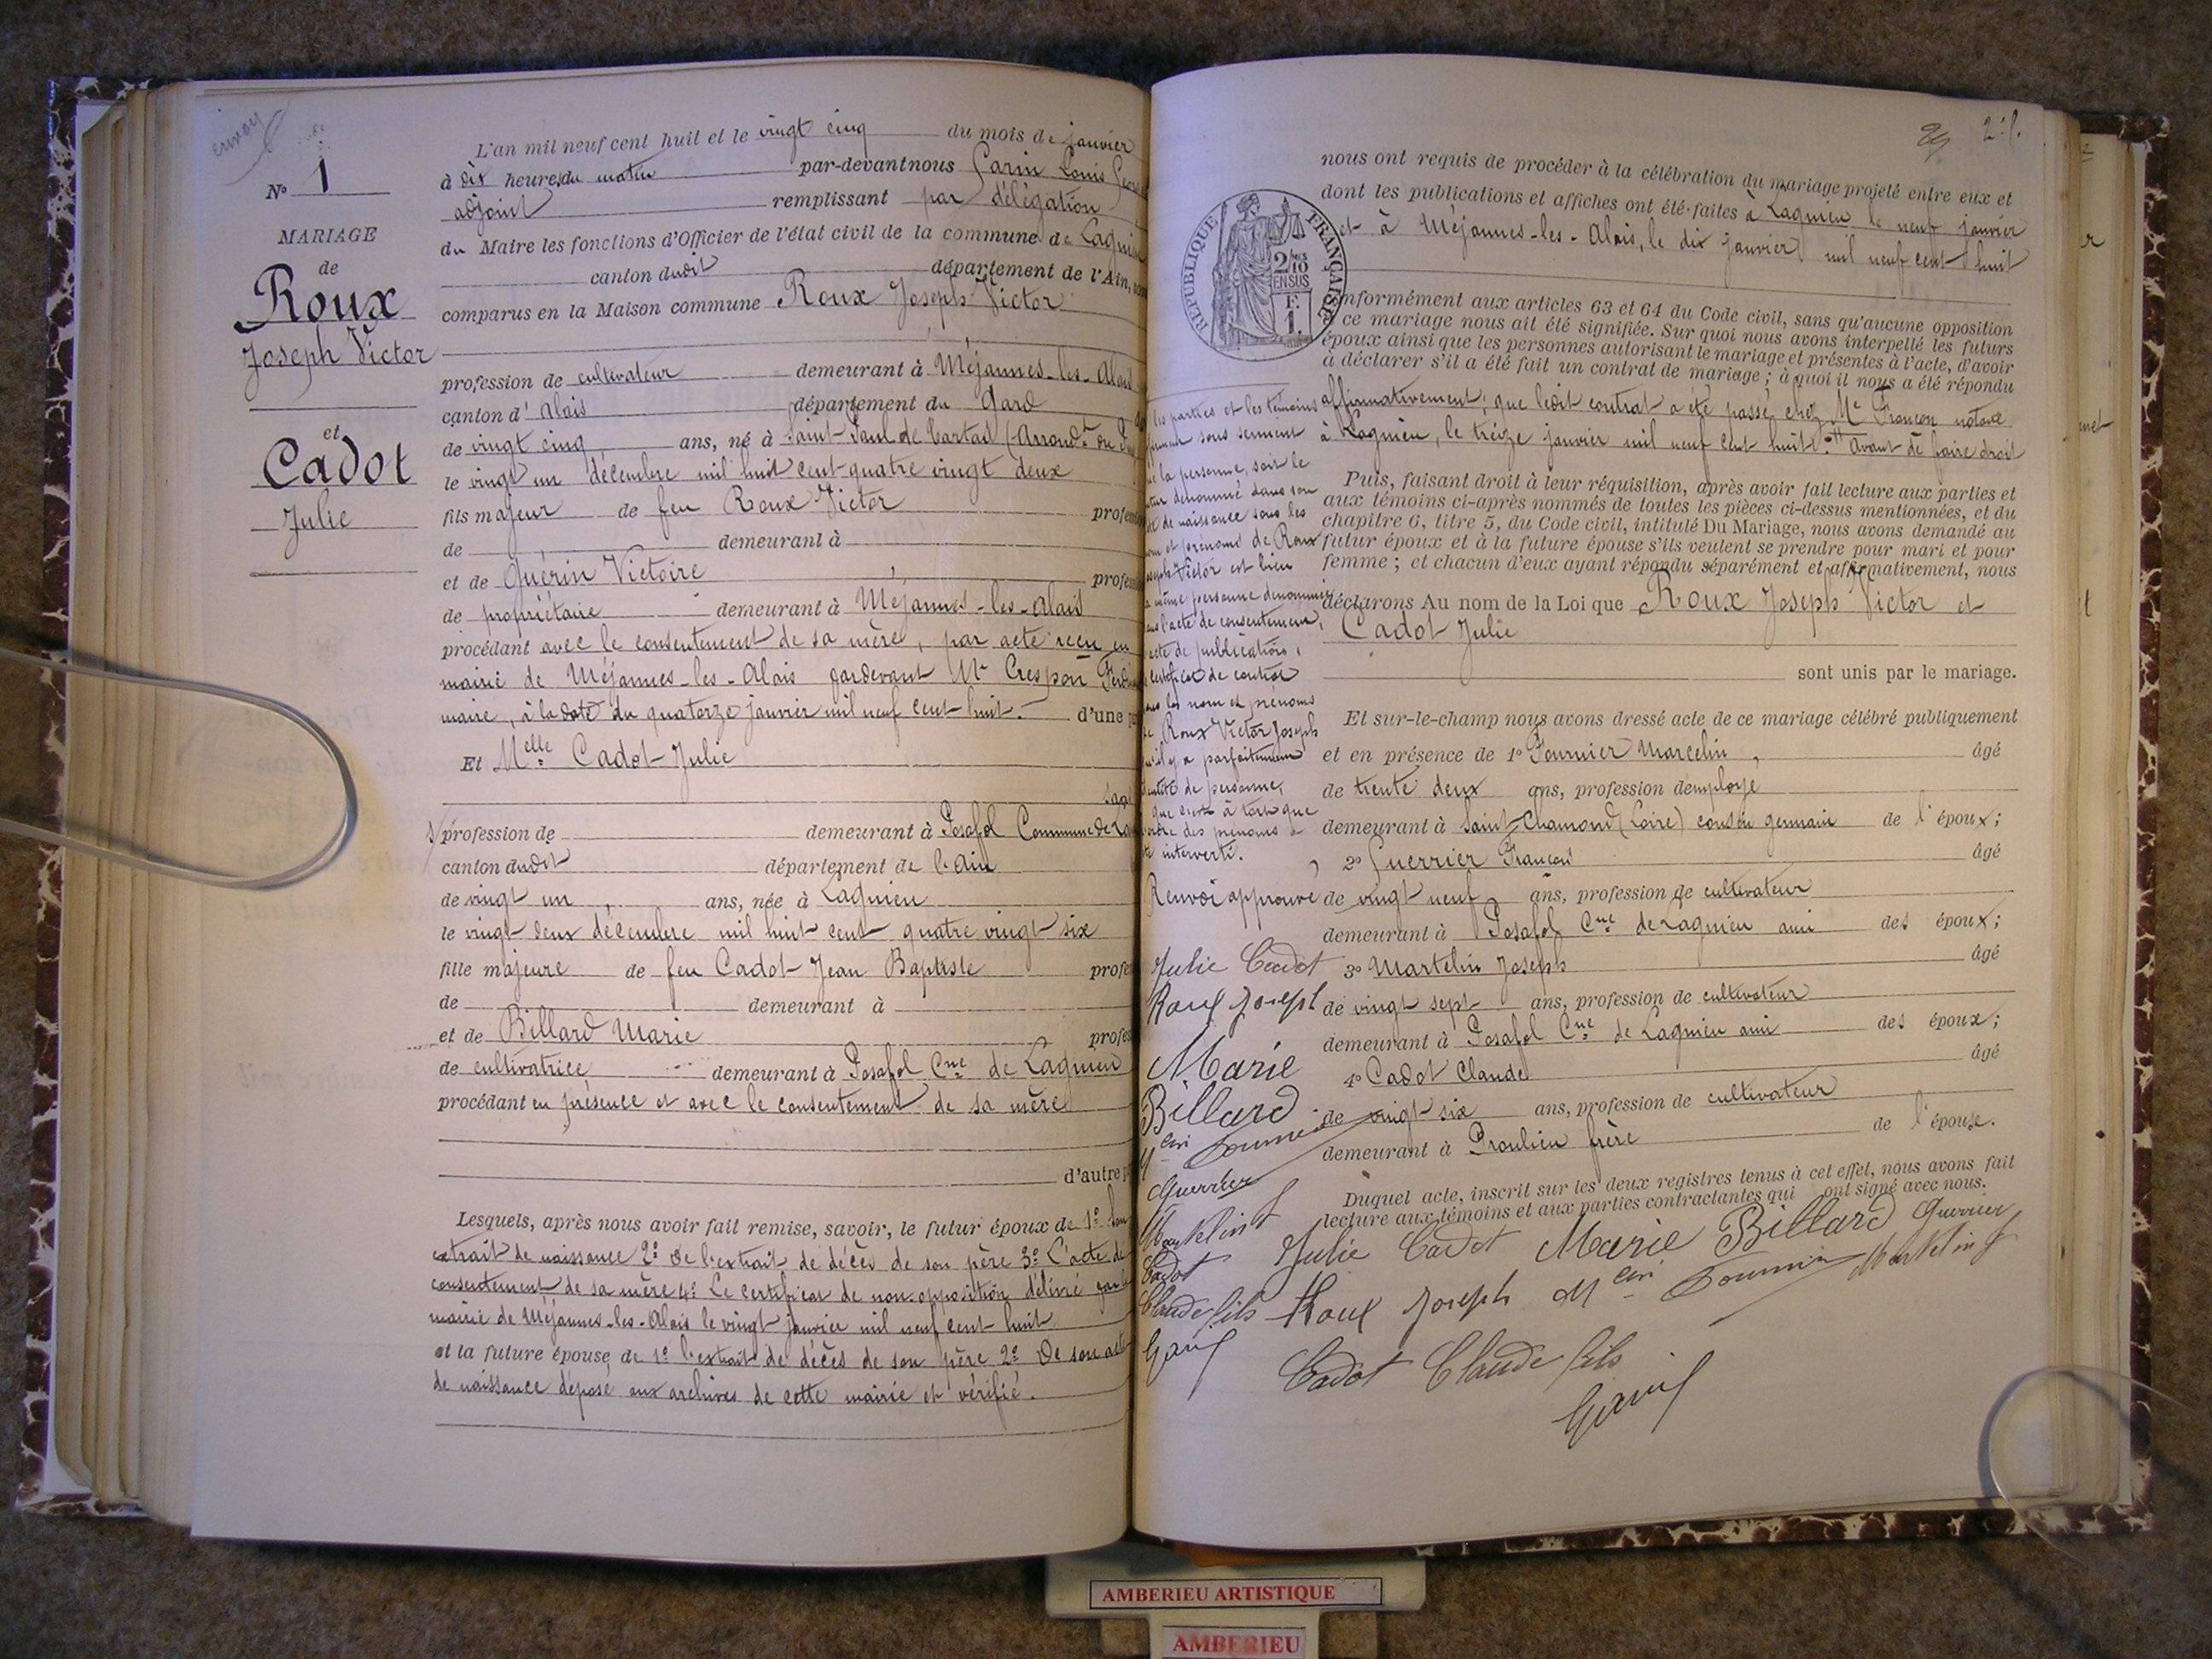 N° 1
MARIAGE
de
Roux
Joseph Victor
et
Cadot
Julie
L'an mil neuf cent huit et le vingt cinq du mois de janvier
à dix heures du matin par-devant nous Garin Louis
adjoint remplissant par délégation
du Maire les fonctions d'Officier de l'état civil de la commune de
canton dudit département de l'Ain,
comparus en la Maison commune Roux Joseph Victor
profession de cultivateur demeurant à Méjannes-les-Alais
canton d'Alais département du Gard
de vingt cinq ans, né à Saint-Paul de
le vingt un décembre mil huit cent quatre vingt deux
fils majeur de feu Roux Victor
de demeurant à
et de Guérin Victoire
de propriétaire demeurant à Méjannes-les-Alais
procédant avec le consentement de sa mère, par acte reçu en
mairie de Méjannes-les-Alais pardevant Mr Crespon
maire, à la date du quatorze janvier mil neuf cent huit. d'une
Et Melle Cadot Julie
profession de demeurant à Posafol Commune de
canton dudit département de l'Ain
de vingt un ans, née à Lagnieu
le vingt deux décembre mil huit cent quatre vingt six
fille majeure de feu Cadot Jean Baptiste
de demeurant à
et de Billard Marie
de cultivatrice demeurant à Posafol Cne de Lagnieu
procédant en présence et avec le consentement de sa mère
d'autre
Lesquels, après nous avoir fait remise, savoir, le futur époux de 1° Son
extrait de naissance 2° De l'extrait de décès de son père 3° L'acte de
consentement de sa mère 4° Le certificat de non-opposition délivré
mairie de Méjannes-les-Alais le vingt janvier mil neuf cent huit
et la future épouse de 1° l'extrait de décès de son père 2° De son acte
de naissance déposé aux archives de cette mairie et vérifié.
2
nous ont requis de procéder à la célébration du mariage projeté entre eux et
dont les publications et affiches ont été faites à Lagnieu le neuf janvier
et à Méjannes-les-Alais, le dix janvier mil neuf cent huit
RÉPUBLIQUE FRANÇAISE
2/10 EN SUS
F.
1.
conformément aux articles 63 et 64 du Code civil, sans qu'aucune opposition
ce mariage nous ait été signifiée. Sur quoi nous avons interpellé les futurs
époux ainsi que les personnes autorisant le mariage et présentes à l'acte, d'avoir
à déclarer s'il a été fait un contrat de mariage ; à quoi il nous a été répondu
affirmativement, que ledit contrat a été passé chez Me Françon notaire
à Lagnieu, le treize janvier mil neuf cent huit. Avant de faire droit
les parties et les témoins
sous serment
la personne, soit le
futur dénommé dans son
de naissance sous les
nom et prénoms de Roux
Joseph Victor est bien
même personne dénommée
l'acte de consentement,
acte de publications,
certificat de contrat
les nom et prénoms
de Roux Victor Joseph
qu'il y a parfaitement
identité de personne,
que c'est à tort que
ordre des prénoms a
été interverti.
Renvoi approuvé
Julie Cadot
Roux Joseph
Marie
Billard
Guerrier
Martelin J
Cadot
Claude fils
Garin
Puis, faisant droit à leur réquisition, après avoir fait lecture aux parties et
aux témoins ci-après nommés de toutes les pièces ci-dessus mentionnées, et du
chapitre 6, titre 5, du Code civil, intitulé Du Mariage, nous avons demandé au
futur époux et à la future épouse s'ils veulent se prendre pour mari et pour
femme ; et chacun d'eux ayant répondu séparément et affirmativement, nous
déclarons Au nom de la Loi que Roux Joseph Victor et
Cadot Julie
sont unis par le mariage.
Et sur-le-champ nous avons dressé acte de ce mariage célébré publiquement
et en présence de 1° Fournier Marcelin, âgé
de trente deux ans, profession d'employé
demeurant à Saint-Chamond (Loire) cousin germain de l'époux;
2° Guerrier François âgé
de vingt neuf ans, profession de cultivateur
demeurant à Posafol Cne de Lagnieu ami des époux;
3° Martelin Joseph âgé
de vingt sept ans, profession de cultivateur
demeurant à Posafol Cne de Lagnieu ami des époux;
4° Cadot Claude âgé
de vingt six ans, profession de cultivateur
demeurant à Proulieu frère de l'épouse.
Duquel acte, inscrit sur les deux registres tenus à cet effet, nous avons fait
lecture aux témoins et aux parties contractantes qui ont signé avec nous.
Julie Cadot Marie Billard Guerrier
Roux Joseph Mcin Fournier Martelin J
Cadot Claude fils
Garin
AMBERIEU ARTISTIQUE
AMBERIEU